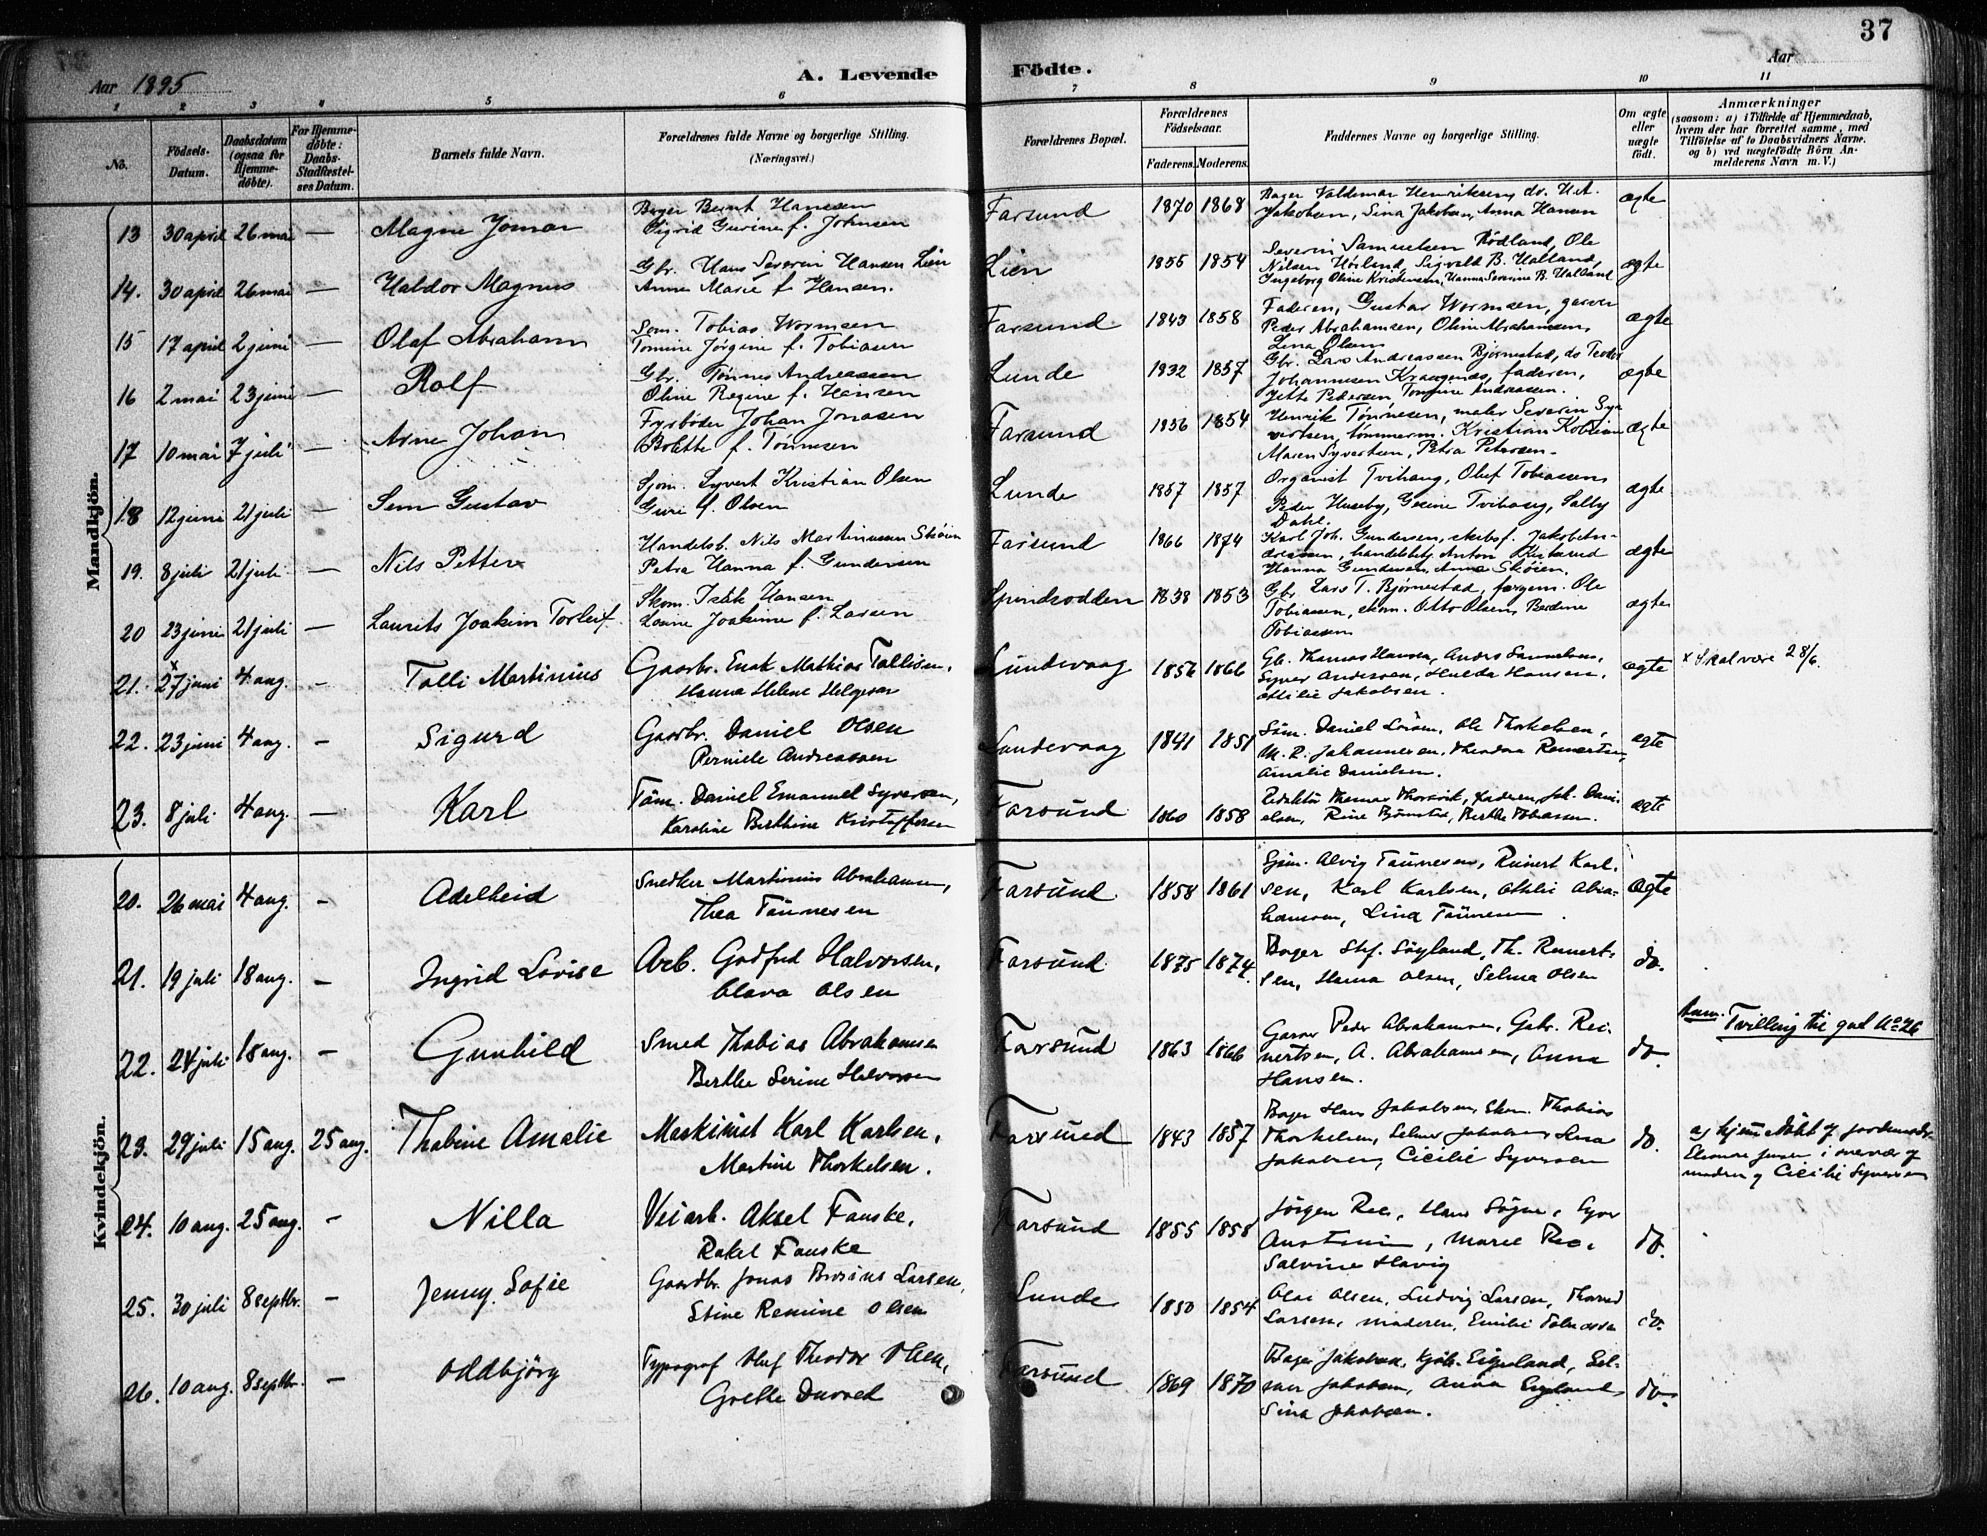 37
Aar 1895
A. Levende
Födte.
Aar
1 2 3 4 5 6 7 8 9 10 11
No.
Födsels-Datum.
Daabsdatum (ogsaa for Hjemme-döbte).
For Hjemme-döbte: Daabs-Stadfæstel-ses Datum.
Barnets fulde Navn.
Forældrenes fulde Navne og borgerlige Stilling.
(Næringsvei.)
Forældrenes Bopæl.
Forældrenes Födselsaar.
Faderens. Moderens.
Faddernes Navne og borgerlige Stilling.
Om ægte eller uægte födt.
Anmærkninger
(saasom: a) i Tilfælde af Hjemmedaab,
hvem der har forrettet samme, med
Tilföielse af to Daabsvidners Navne.
og b) ved uægtefödte Börn An-
melderens Navn m. V.)
Mandkjön.
13 30 april 26 mai — Magne Jomar
Bager Bernt Hansen
Sigrid Gurine f. Johnsen
Farsund 1870 1868
Bager Valdemar Henriksen, do. H.A.
Jakobsen, Sina Jakobsen, Anna Hansen
ægte
14. 30 april 26 mai — Haldor Magnus
Gbr. Hans Severin Hansen Lien
Anne Marie f. Hansen.
Lien 1855 1854
Severin Samuelsen Rødland, Ole
Nilsen Hørland, Sigvald B. Halland,
Ingeborg Oline Kristensen, Hanna Severine B. Halland
ægte
15 17 april 2 juni — Olaf Abraham
Søm. Tobias Wormsen
Tomine Jørgine f. Tobiasen
Farsund 1843 1858
Faderen, Gustav Wormsen, garver
Peder Abrahamsen, Oline Abrahamsen,
Lina Olsen
ægte
16 2 mai 23 juni — Rolf
Gbr. Tønnes Andreassen
Oline Regine f. Hansen
Lunde 1832 1857
Gbr. Lars Andreassen Bjørnestad, do Peder
Johannesen Kraagenes, faderen,
Jette Pedersen, Tomine Andreasen.
ægte
17 10 mai 7 juli — Arne Johan
Fyrbøder Johan Jonasen
Bolette f. Tønnesen
Farsund 1856 1854
Henrik Tønnesen, maler Severin Sy-
vertsen, tømmerm. Kristian
Maren Syvertsen, Petra Petersen.
ægte
18 12 juni 21 juli — Sem Gustav
Sjøm. Syvert Kristian Olsen
Guri f. Olsen
Lunde 1857 1857
Organist Tvihaug, Oluf Tobiassen
Peder Huseby, Gesine Tvihaug, Sally
Dahl.
ægte
19. 8 juli 21 juli — Nils Petter
Handelsb. Nils Martinussen Skøien
Petra Hanna f. Gundersen
Farsund 1866 1874
Karl Joh. Gundersen, skibsf. Jakob An-
dreassen, handelsbtj. Anton
Hanna Gundersen, Anna Skøien.
ægte
20 23 juni 21 juli — Laurits Joakim Torleif
Skom. Isak Hansen
Lovise Joakime f. Larsen
Spindsodden 1838 1853
Gbr. Lars T. Bjørnestad, færgem. Ole
Tobiassen, skom. Otto Olsen, Berdine
Tobiassen
ægte
21. x 27 juni 4 aug. — Tolli Martinius
Gaardbr. Enok Mathias Tollisen,
Hanna Helene Helgesen
Lundevaag 1856 1866
Gb. Thomas Hansen, Anders Samuelsen,
Syver Andersen, Hulda Hansen,
Ottilie Jakobsen.
ægte
x Skal være 28/6.
22. 23 juni 4 aug. — Sigurd
Gaardbr. Daniel Olsen
Pernille Andreassen
Lundevaag 1841 1851
Søm. Daniel Larsen, Ole Thorkelsen,
M. R. Johannessen, Theodora Reinertsen,
Amalie Danielsen.
ægte
23. 8 juli 4 aug. — Karl
Töm. Daniel Emanuel Syversen,
Karoline Berthine Kristoffersen
Farsund 1860 1858
Redaktör Thomas Thorsvik, faderen, Jak. Dani-
elsen, Rine Bjørnstad, Berthe Tobiassen.
ægte
Kvindekjön.
20. 26 mai 4 aug. — Adelheid
Snedker Martinius Abrahamsen,
Thea Tönnesen
Farsund 1858 1861
Sjöm. Alvig Tönnesen, Reinert Karl-
sen, Karl Karlsen, Otilie Abra-
hamsen, Lina Tönnesen.
ægte
21. 19 juli 18 aug. — Ingrid Lovise
Arb. Godfred Halvorsen,
Olava Olsen
Farsund 1875 1874.
Bager Stef. Söyland, Th. Reinert-
sen, Hanna Olsen, Selma Olsen
do.
22. 24 juli 18 aug. — Gunhild
Smed Thobias Abrahamsen
Berthe Serine Halvorsen
Farsund 1863 1866
Garver Peder Abrahamsen, Gabr. Rei-
nertsen, A. Abrahamsen, Anna
Hansen.
do.
Anm. Tvilling til gut No 26
23. 29 juli 15 aug. 25 aug. Thobine Amalie
Maskinist Karl Karlsen,
Martine Thorkelsen.
Farsund 1843 1857
Bager Hans Jakobsen, Skom. Thobias
Thorkelsen, Selma Jakobsen, Sina
Jakobsen, Cicilie Syversen
do.
a) hjemmedöbt af jordemoder
Eleonore Jensen i nærvær af
moderen og Cicilie Syversen
24. 10 aug. 25 aug. — Nilla
Veiarb. Aksel Fauske,
Rakel Fauske
Farsund 1855 1858
Jörgen Ree, Hans Sögne, Syver
, Marie Ree,
Salvine Havig
do.
25. 30 juli 8 septbr. — Jenny Sofie
Gaardbr. Jonas Larsen,
Stine Olsen
Lunde 1850 1854
Olai Olsen, Ludvig Larsen, Thorvald
Larsen, moderen, Emilie
do.
26. 10 aug. 8 septbr. — Oddbjörg
Typograf Oluf Theodor Olsen,
Grethe
Farsund 1869 1870
Bager Jakobsen, Kjöb. Eigeland, Sel-
mer Jakobsen, Anna Eigeland,
Sina Jakobsen.
do.